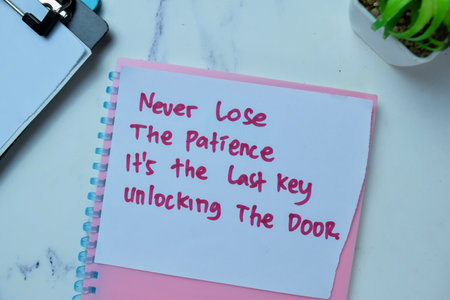 Never Lose
The Patience
It's the Last Key
Unlocking The Door.